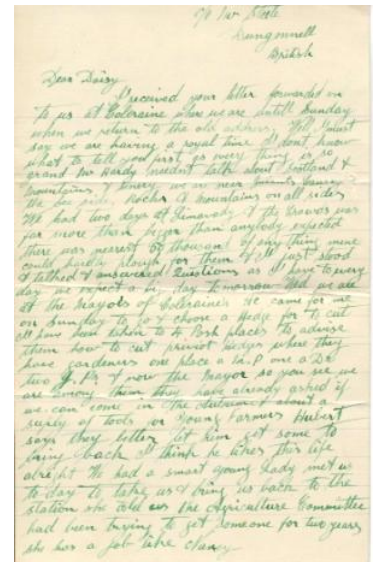 C/o Mr Steele
Dungonnell
British
Dear Daisy
I received your letter forwarded on
to us at Coleraine where we are untill Sunday
when we return to the old address. Well I must
say we are having a royal time I dont know
what to tell you first as every thing is so
grand Mr Hardy needn't talk about Scotland &
Mountains & scenery, we are near
the sea side, Rocks & Mountains on all sides
We had two days at Limavady & the crowds was
far more than bigger than anybody expected
there was nearest 6 thousand if any thing mine
could hardly plough for them & I just stood
& talked & answered Questions as I have to every
day we expect a big day tomorrow Wed we are
at the Mayors of Coleraine's He came for me
on Sunday to go & choose a Hedge for to cut
all have been taken to 4 Posh places to advise
them how to cut privet hedges where they
have gardeners one place a M.P one a Dr
two J.Ps & now the Mayor so you see we
are among them they have already asked if
we can come in the Autumn & about a
supply of tools for Young Farmers Hubert
says they better let him get some to
bring back I think he likes this life
alright We had a smart young lady met us
to day to take us & bring us back to the
station she told us the Agriculture Committee
had been trying to get someone for two years
she has a job like Nancy